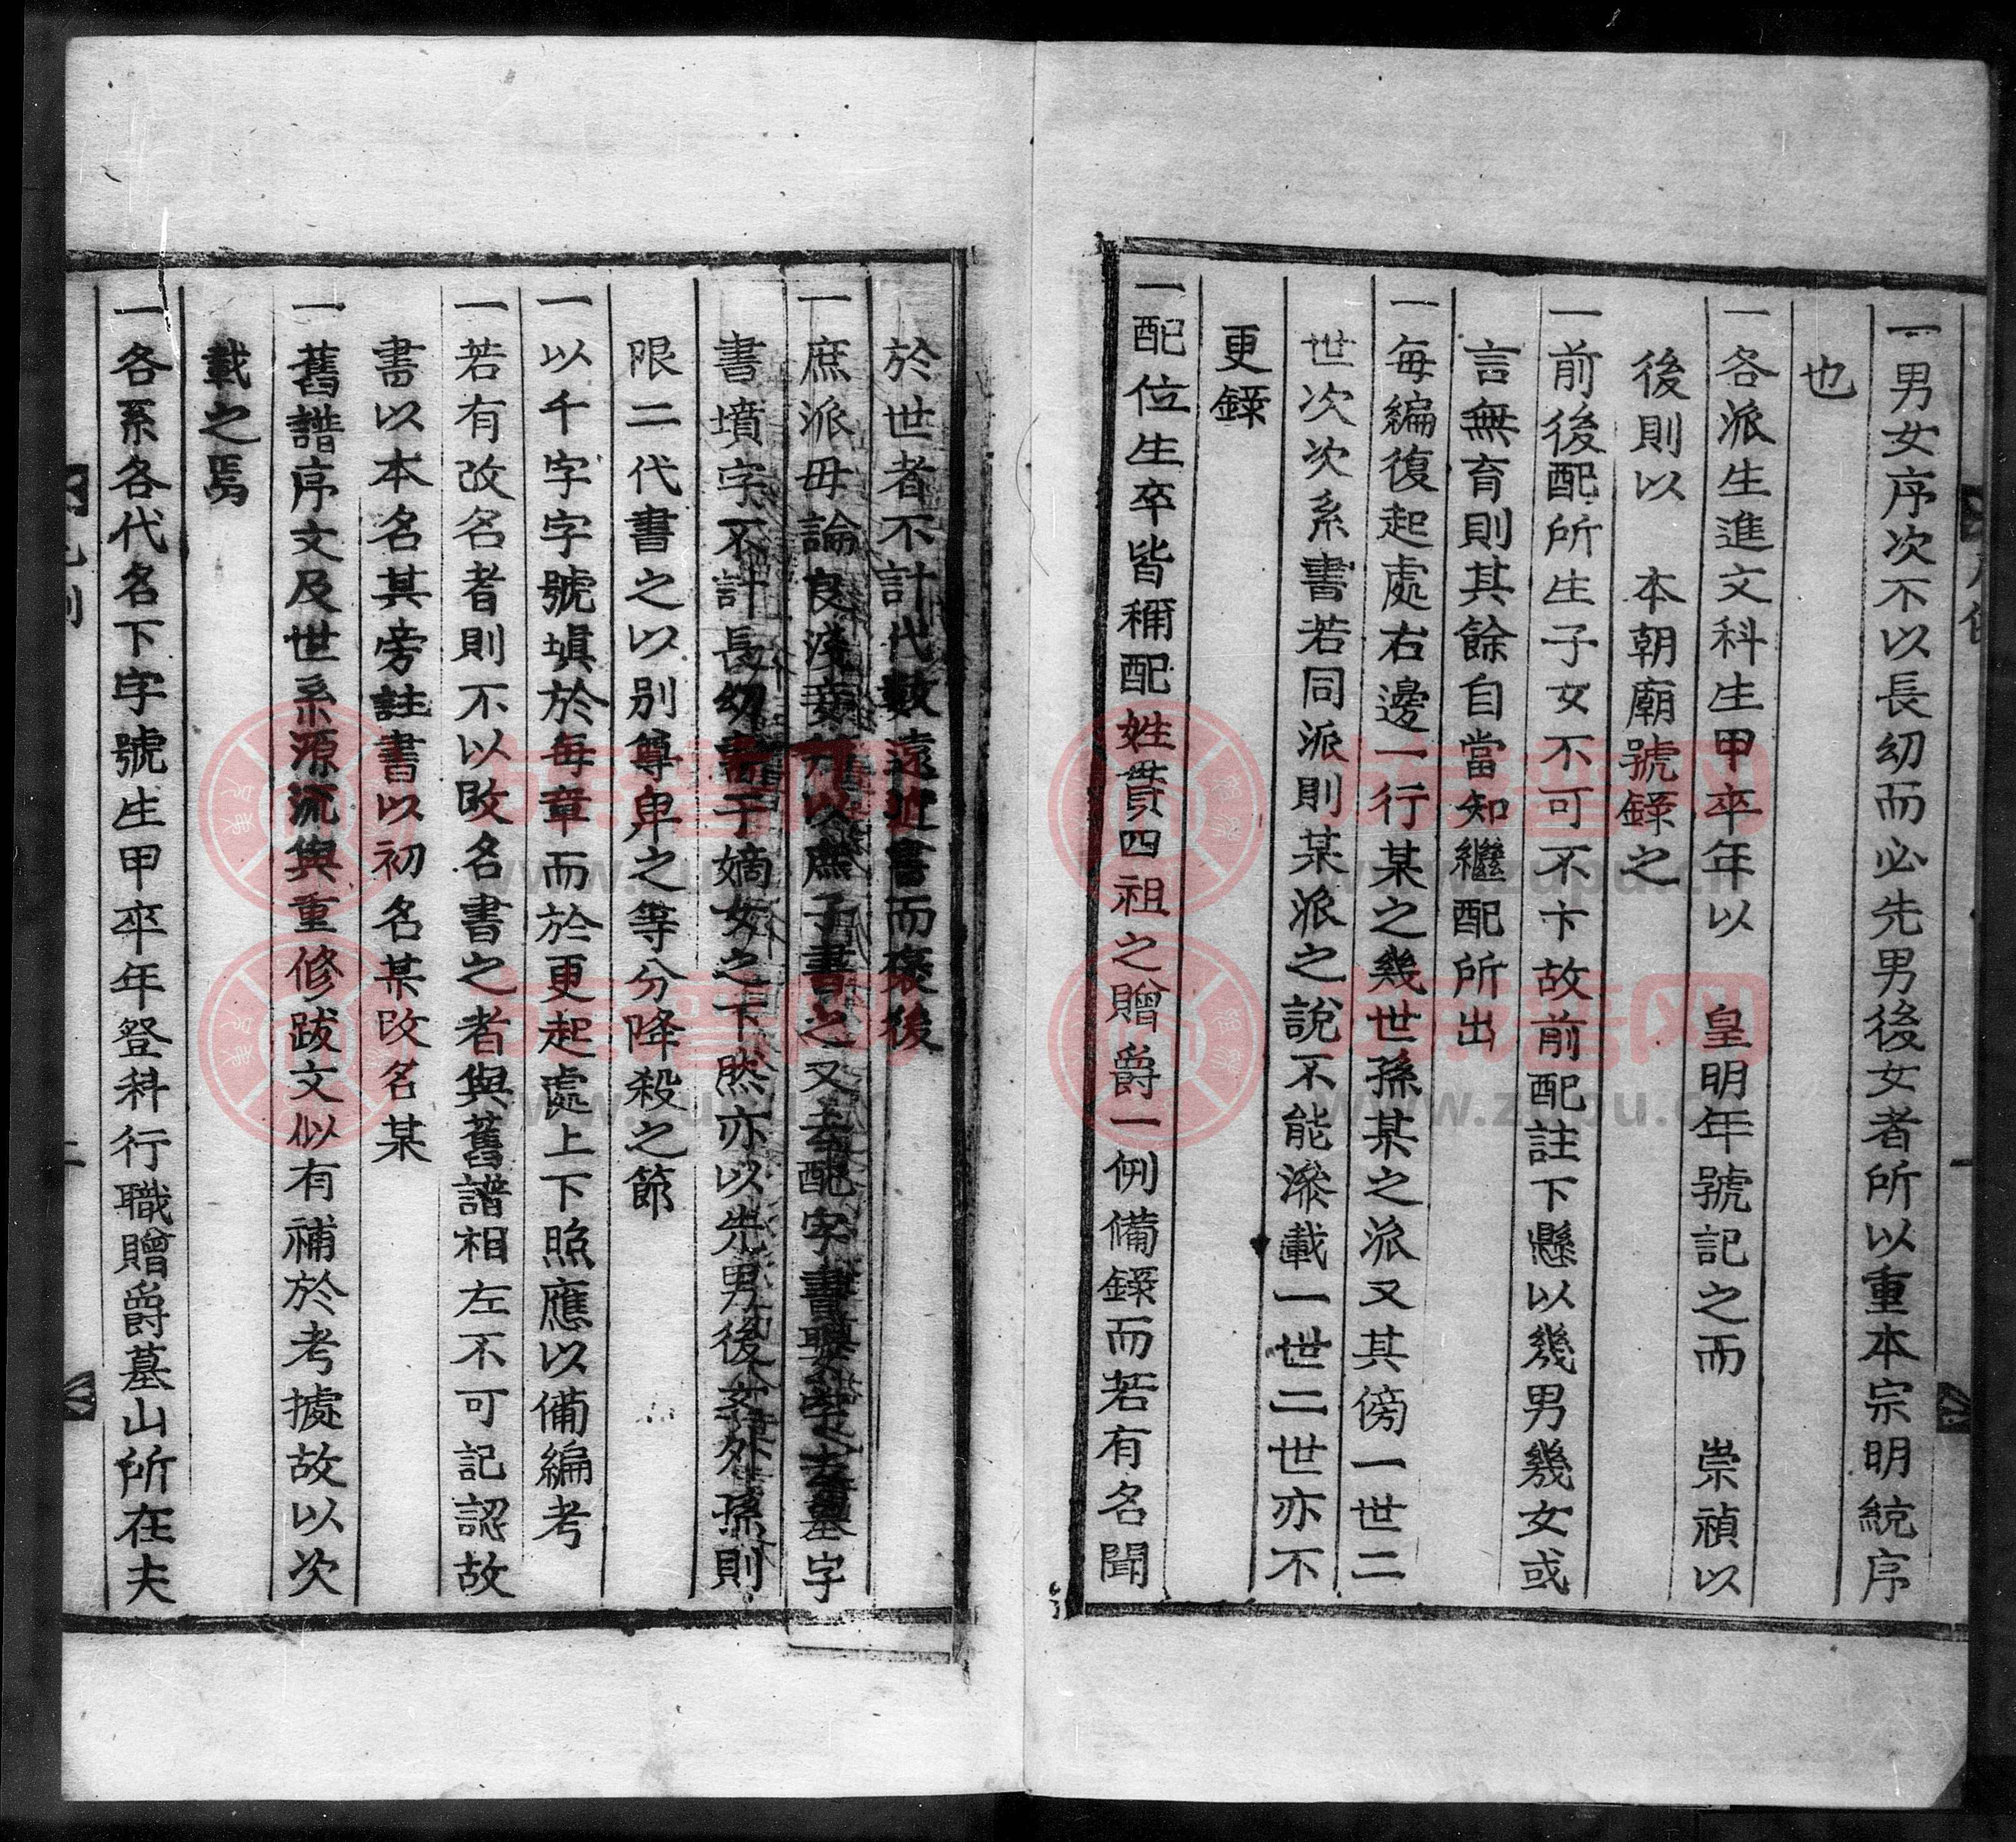 一男女序次不以長幼而必先男後女者所以重本宗明統序
也
一各派生進文科生甲卒年以 皇明年號記之而 崇禎以
後則以 本朝廟號錄之
一前後配所生子女不可不卞故前配註下懸以幾男幾女或
言無育則其餘自當知繼配所出
一每編復起處右邊一行某之幾世孫某之派又其傍一世二
世次次系書若同派則某派之說不能滲載一世二世亦不
更錄
一配位生卒皆稱配姓貫四祖之贈爵一例備錄而若有名聞
於世者不計代數遠近書而裕後
一庶派毋論良淺 以庶子書之又去配字書 字去墓字
書墳字不計長幼書于嫡女之下然亦以先男後女外孫則
限二代書之以別尊卑之等分降殺之節
一以千字字號塡於每章而於更起處上下照應以備編考
一若有改名者則不以改名書之者與舊譜相左不可記認故
書以本名其旁註書以初名某改名某
一舊譜序文及世系源流與重修跋文似有補於考據故以次
載之焉
一各系各代名下字號生甲卒年登科行職贈爵墓山所在夫
族譜网
www.zupu.cn